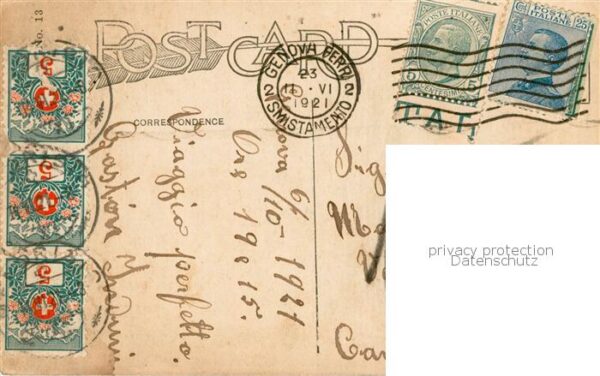 No. 13
POST CARD
GENOVA FERR.
23
11 · VI
1921
2 SMISTAMENTO 2
POSTE ITALIANE
5
5
CENTESIMI
POSTE ITALIANE
C. 25
CORRESPONDENCE
5
5
5
6/10-1921
Ore 19 e 15.
Viaggio perfetto.
Gaston
privacy protection
Datenschutz